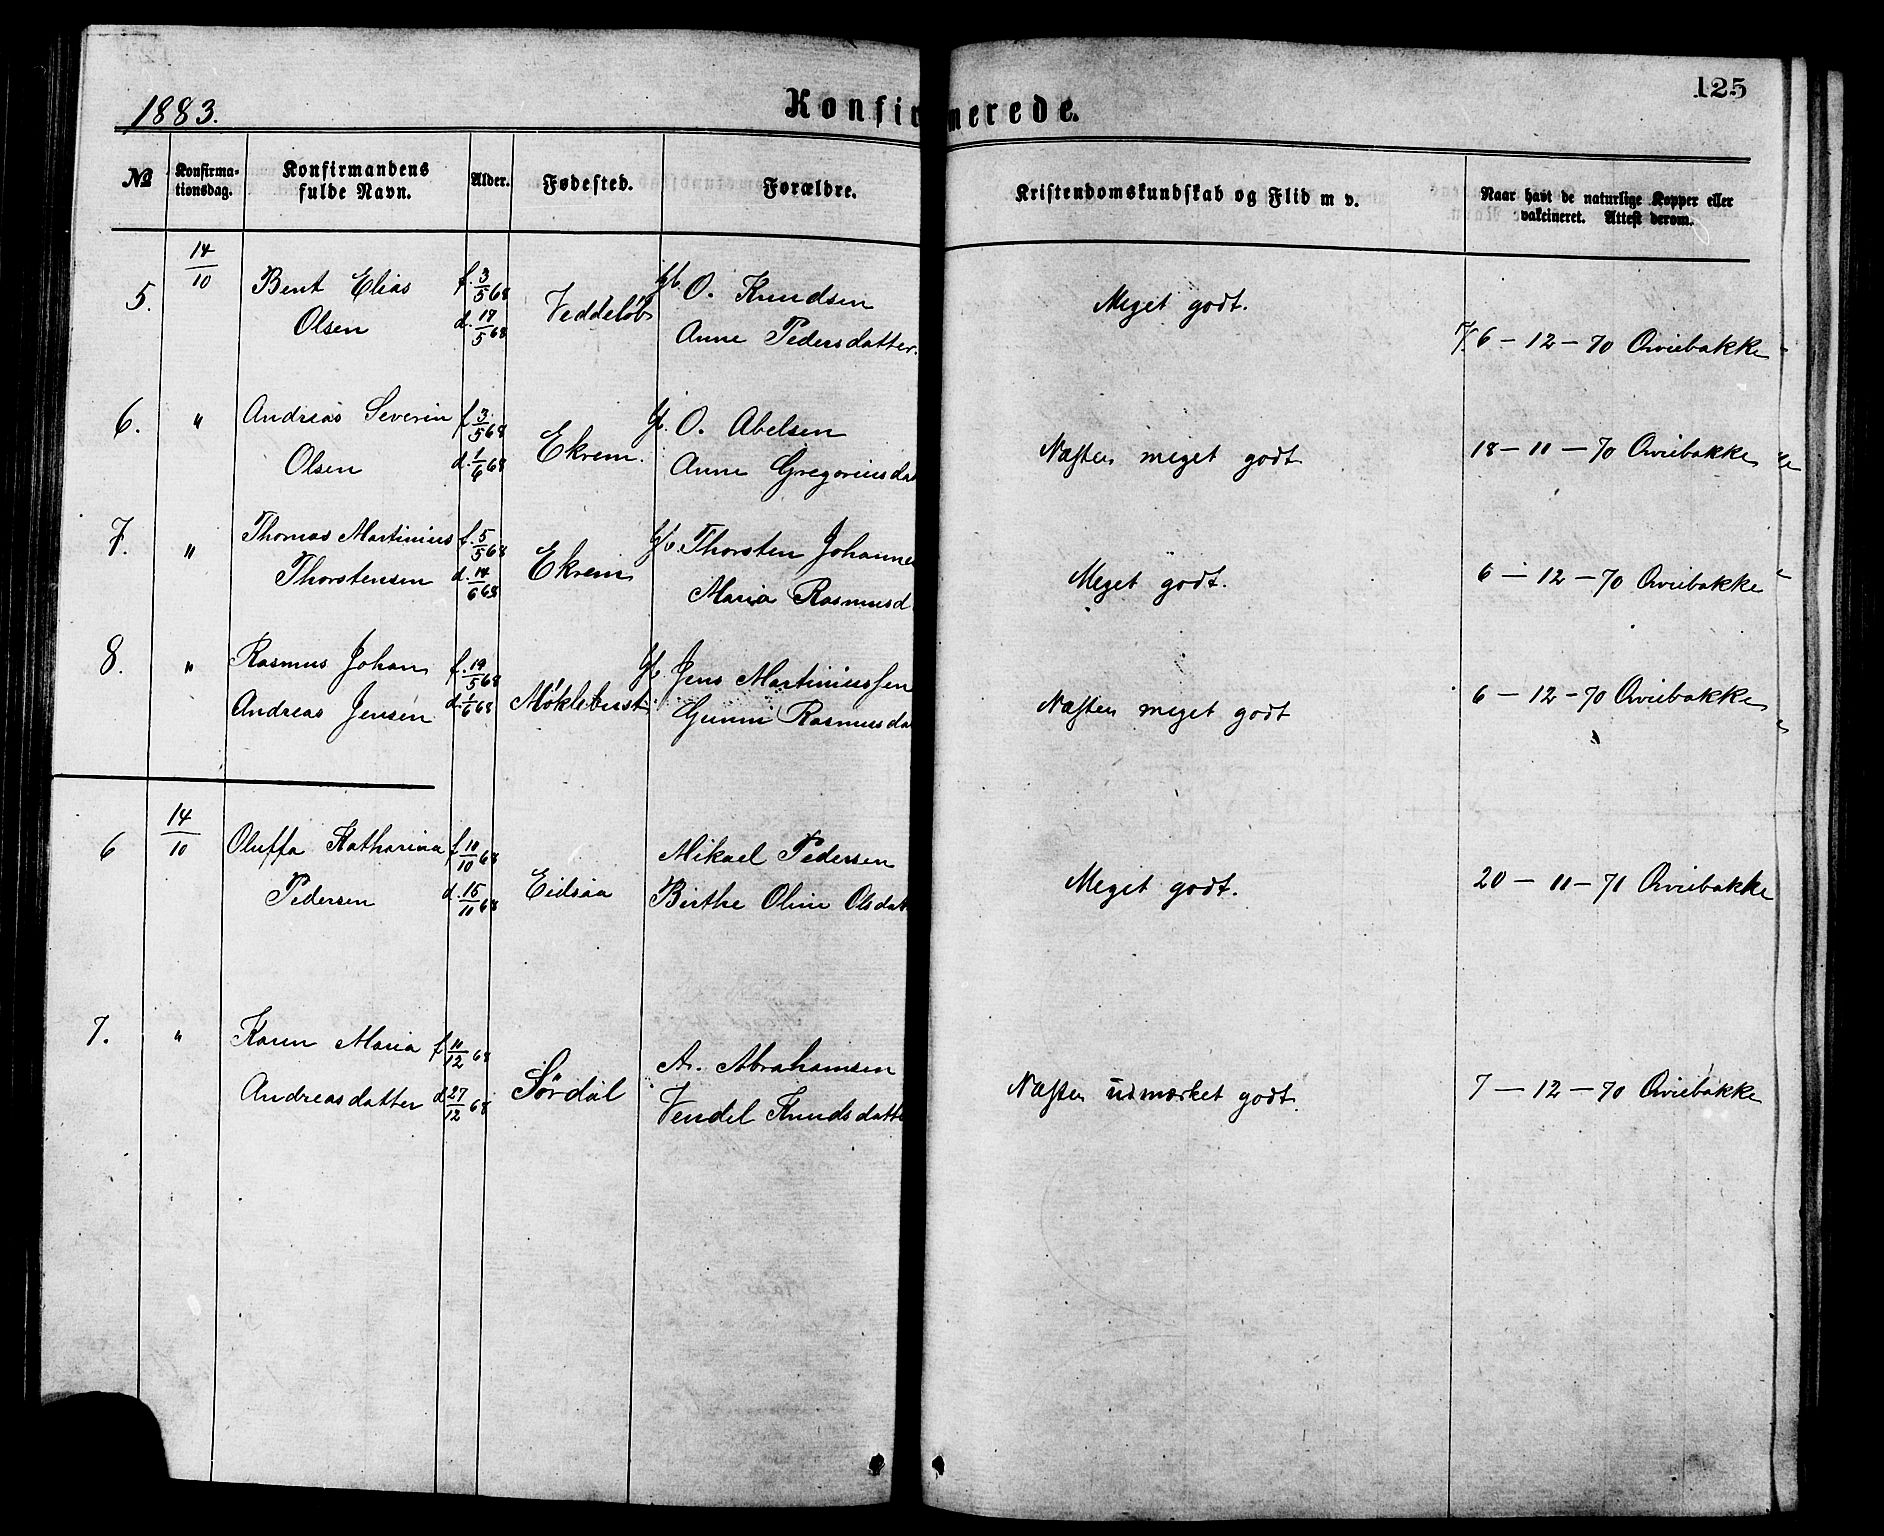 125
1883.
Konfirmerede.
№ Konfirmationsdag. Konfirmandens fulde Navn. Alder. Fødested. Forældre. Kristendomskundskab og Flid m v. Naar havt de naturlige Kopper eller vakcineret. Attest derom.
14/10
5. Bent Elias f. 3/5 68 Veddeløb O. Knudsen Meget godt.
Olsen d. 17/5 68 Anne Pedersdatter. 6 - 12 - 70 Qviebakke
6. " Andreas Severin f. 3/5 68 Ekrem. Gb. O. Abelsen Næsten meget godt 18 - 11 - 70 Qviebakke
Olsen d. 1/6 68 Anne Gregoriusda
7. " Thomas Martinius f. 5/5 68 Ekrem Gb. Thorsten Johanne Meget godt. 6 - 12 - 70 Qviebakke
Thorstensen d. 14/6 68 Maria Rasmusd
8. " Rasmus Johan f. 19/5 68 Møklebust Gb. Jens Martiniussen Næsten meget godt 6 - 12 - 70 Qviebakke
Andreas Jensen d. 1/6 68 Gunni Rasmusda
6 14/10 Oluffa Katharina f. 10/10 68 Eidsaa Mikael Pedersen Meget godt. 20 - 11 - 71 Qviebakke
Pedersen d. 15/11 68 Birthe Oline Olsdat
7. " Karen Maria f. 11/12 68 Sørdal A. Abrahamsen Næsten udmærket godt. 7 - 12 - 70 Qviebakke
Andreasdatter d. 27/12 68 Vendel Knudsdatte